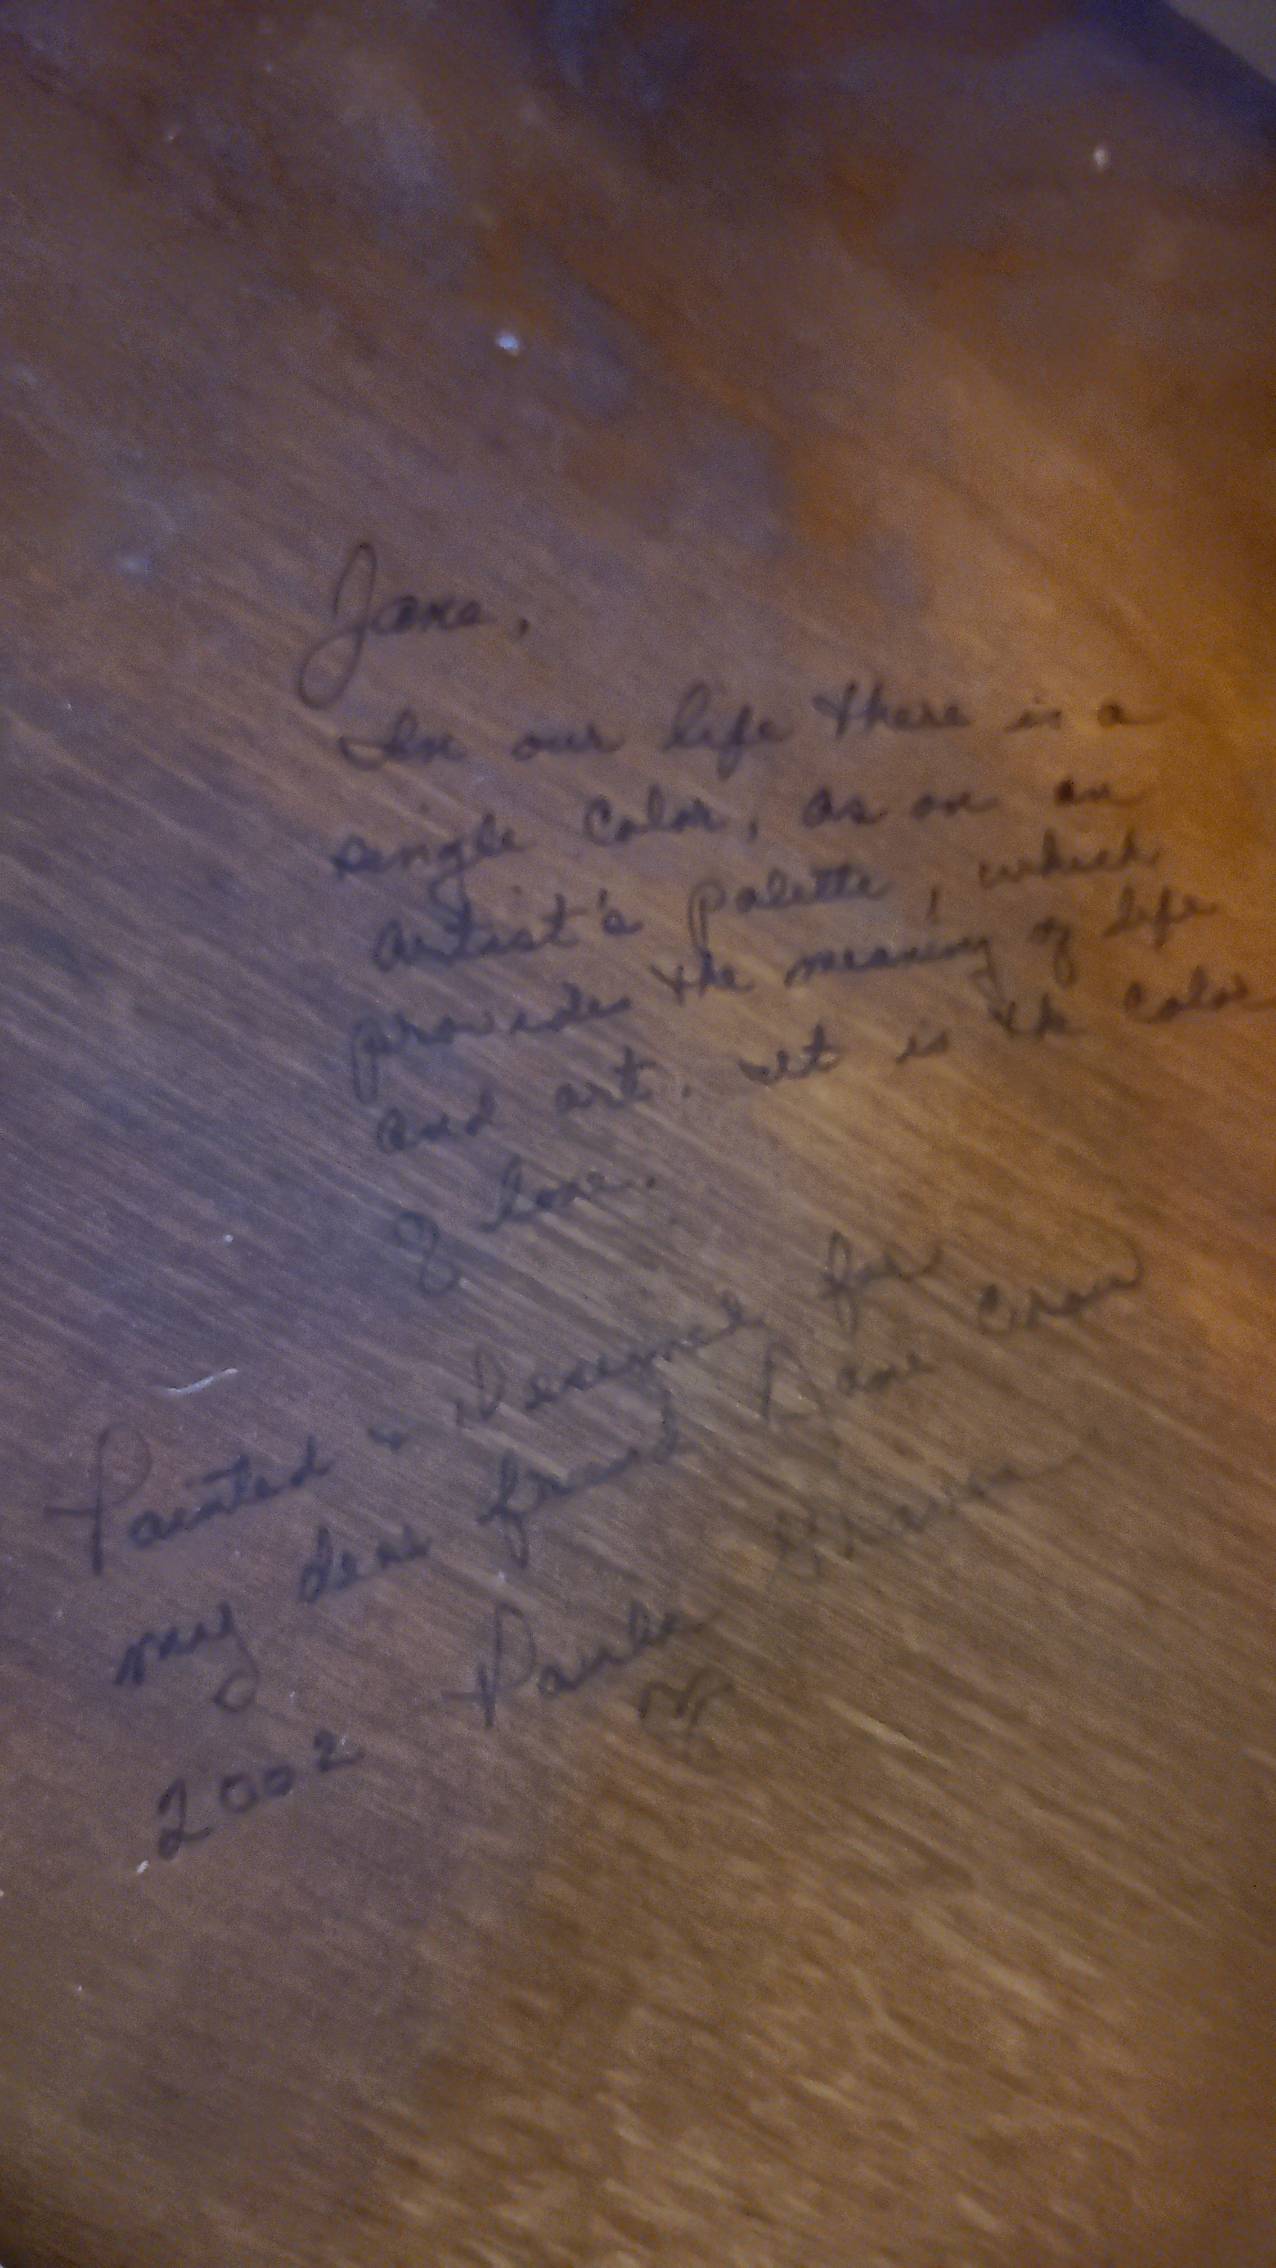 Jane,
In our life there is a
single color, as on an
artist's palette, which
provides the meaning of life
and art. It is the color
of love.
Painted & Designed for
my dear friend Jane Crow
2002